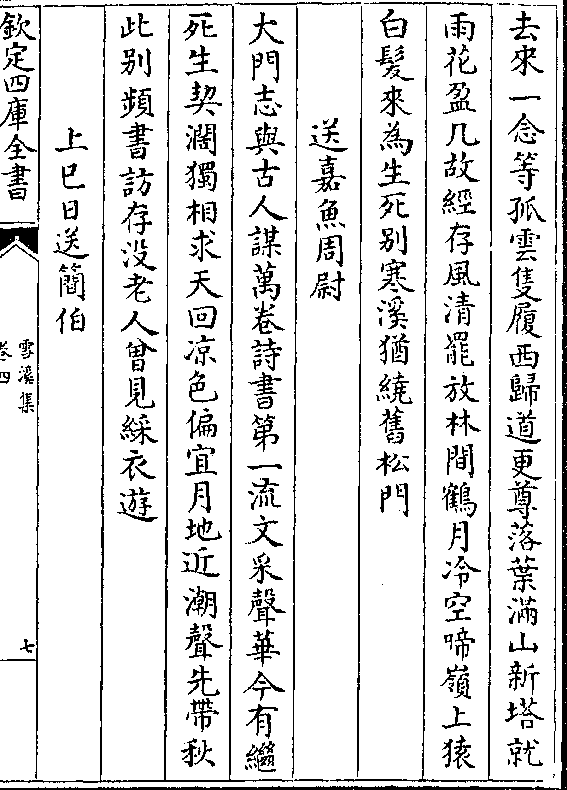 去來一念等孤雲隻履西歸道更尊落葉滿山新塔就
雨花盈几故經存風清罷放林間鶴月冷空啼嶺上猿
白髮來為生死别寒溪猶繞舊松門
送嘉魚周尉
大門志與古人謀萬卷詩書第一流文采聲華今有繼
死生契濶獨相求天回凉色偏宜月地近潮聲先帶秋
此别頻書訪存没老人曾見綵衣遊
上巳日送簡伯
欽定四庫全書
雪溪集
卷四
七